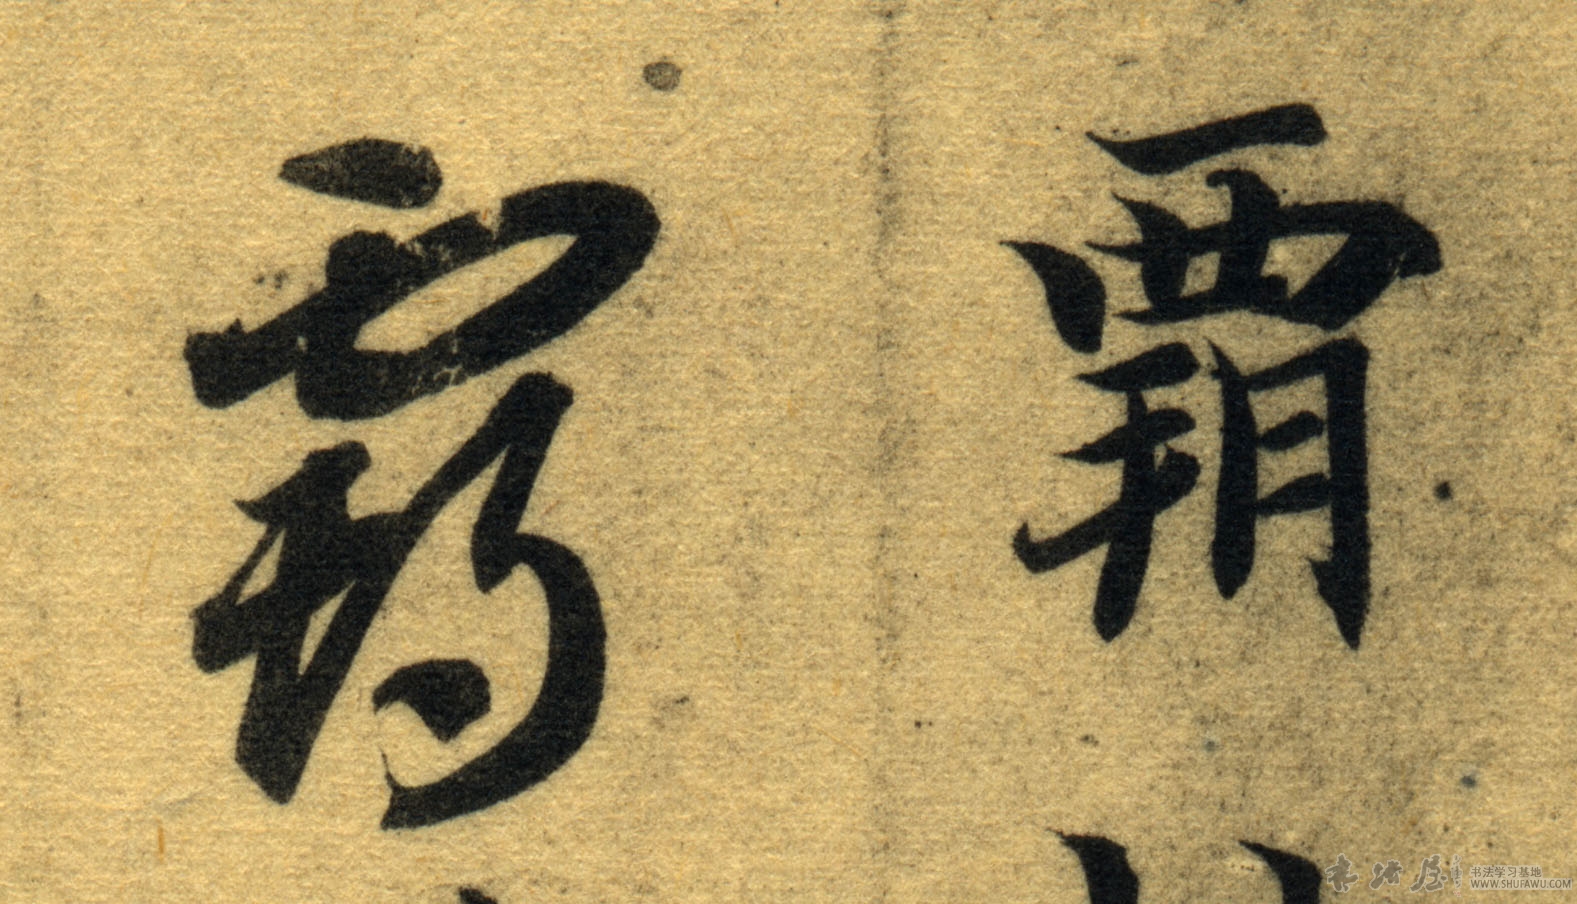 霸
霸
書法屋
书法学习基地
WWW.SHUFAWU.COM